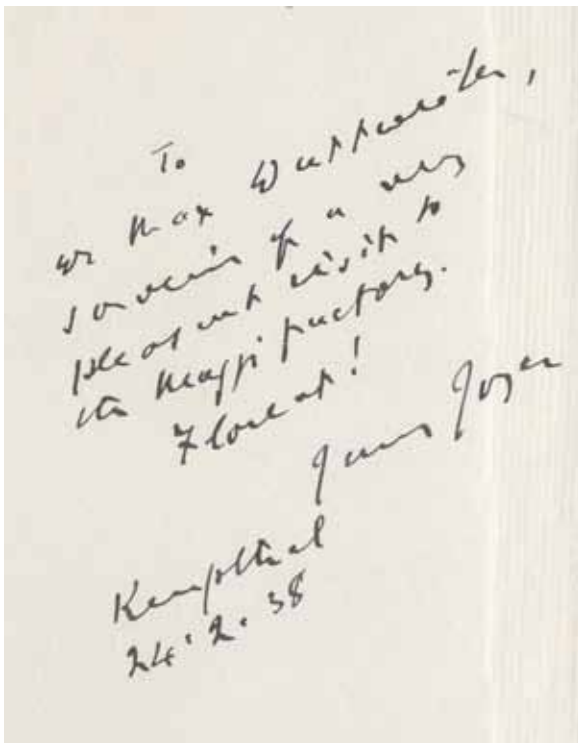 To
Mr Max
souvenir of a very
pleasant visit to
the Maggi factory.
Floreat!
James Joyce
Kemptthal
24.2.38